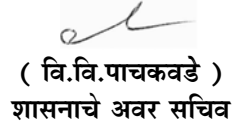 ( वि.वि.पाचकवडे )
शासनाचे अवर सचिव